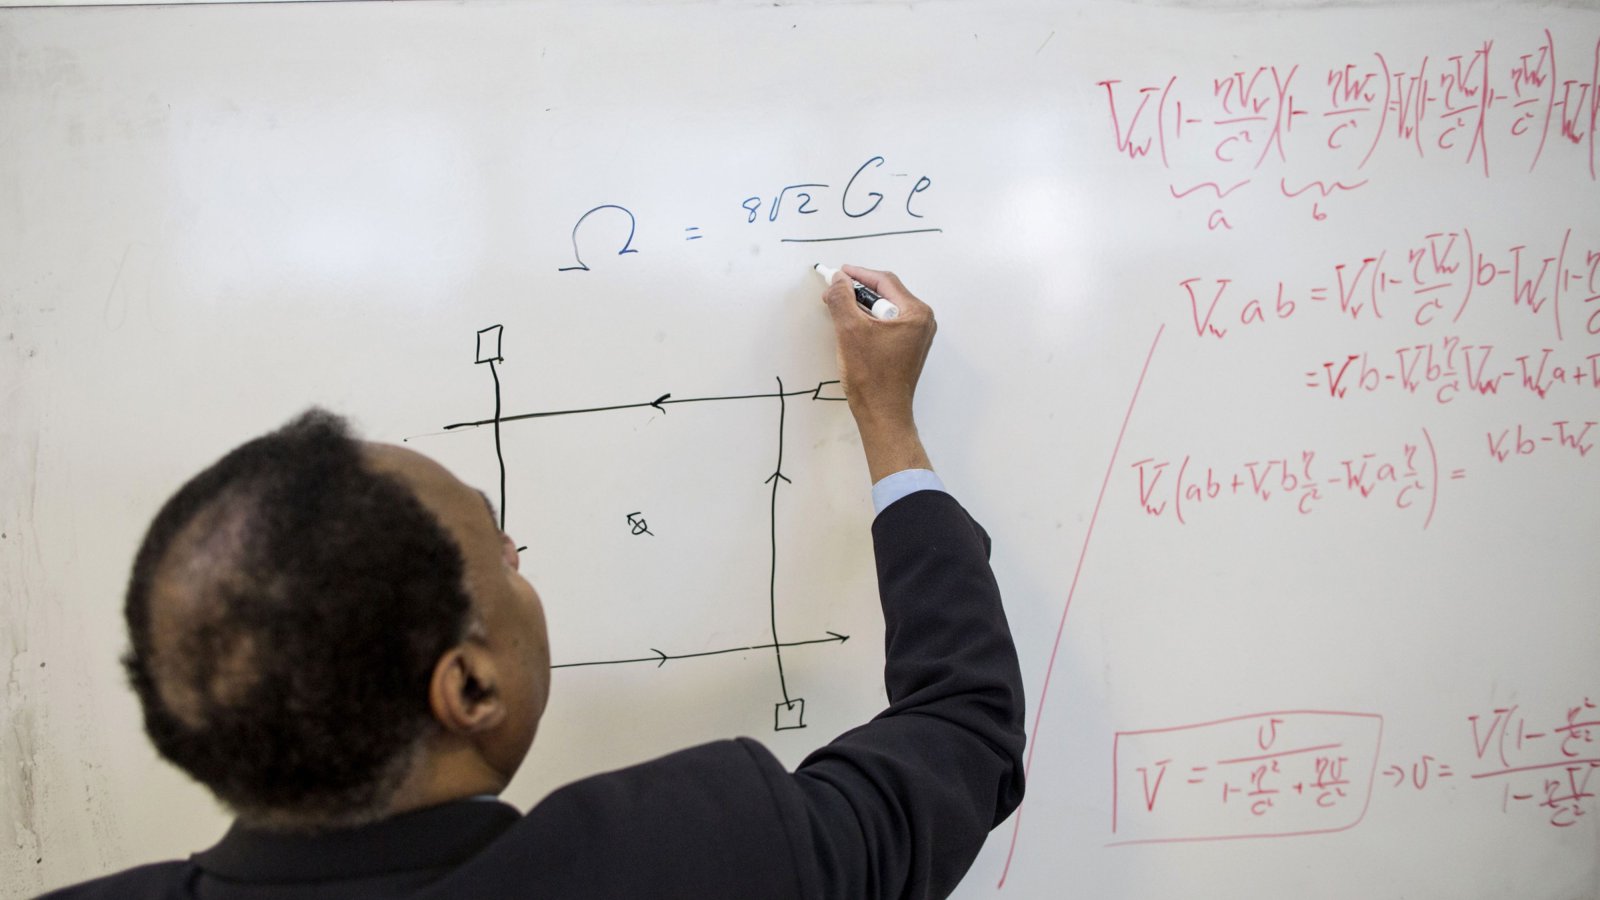 Ω = 8√2 Gρ
V_w(1 - ηV_v/c²)(1 - ηW_v/c²) = V_v(1 - ηV_w/c²)(1 - ηW_v/c²) - W_v(
a b
V_w ab = V_v(1 - ηV_w/c²)b - W_v(1 - η
= V_v b - V_v b η/c² V_w - W_v a +
V_w(ab + V_v b η/c² - W_v a η/c²) = V_v b - W_v
V = v/(1 - η²/c² + ηv/c²) → v = V(1 - η²/c²)/(1 - ηV/c²)